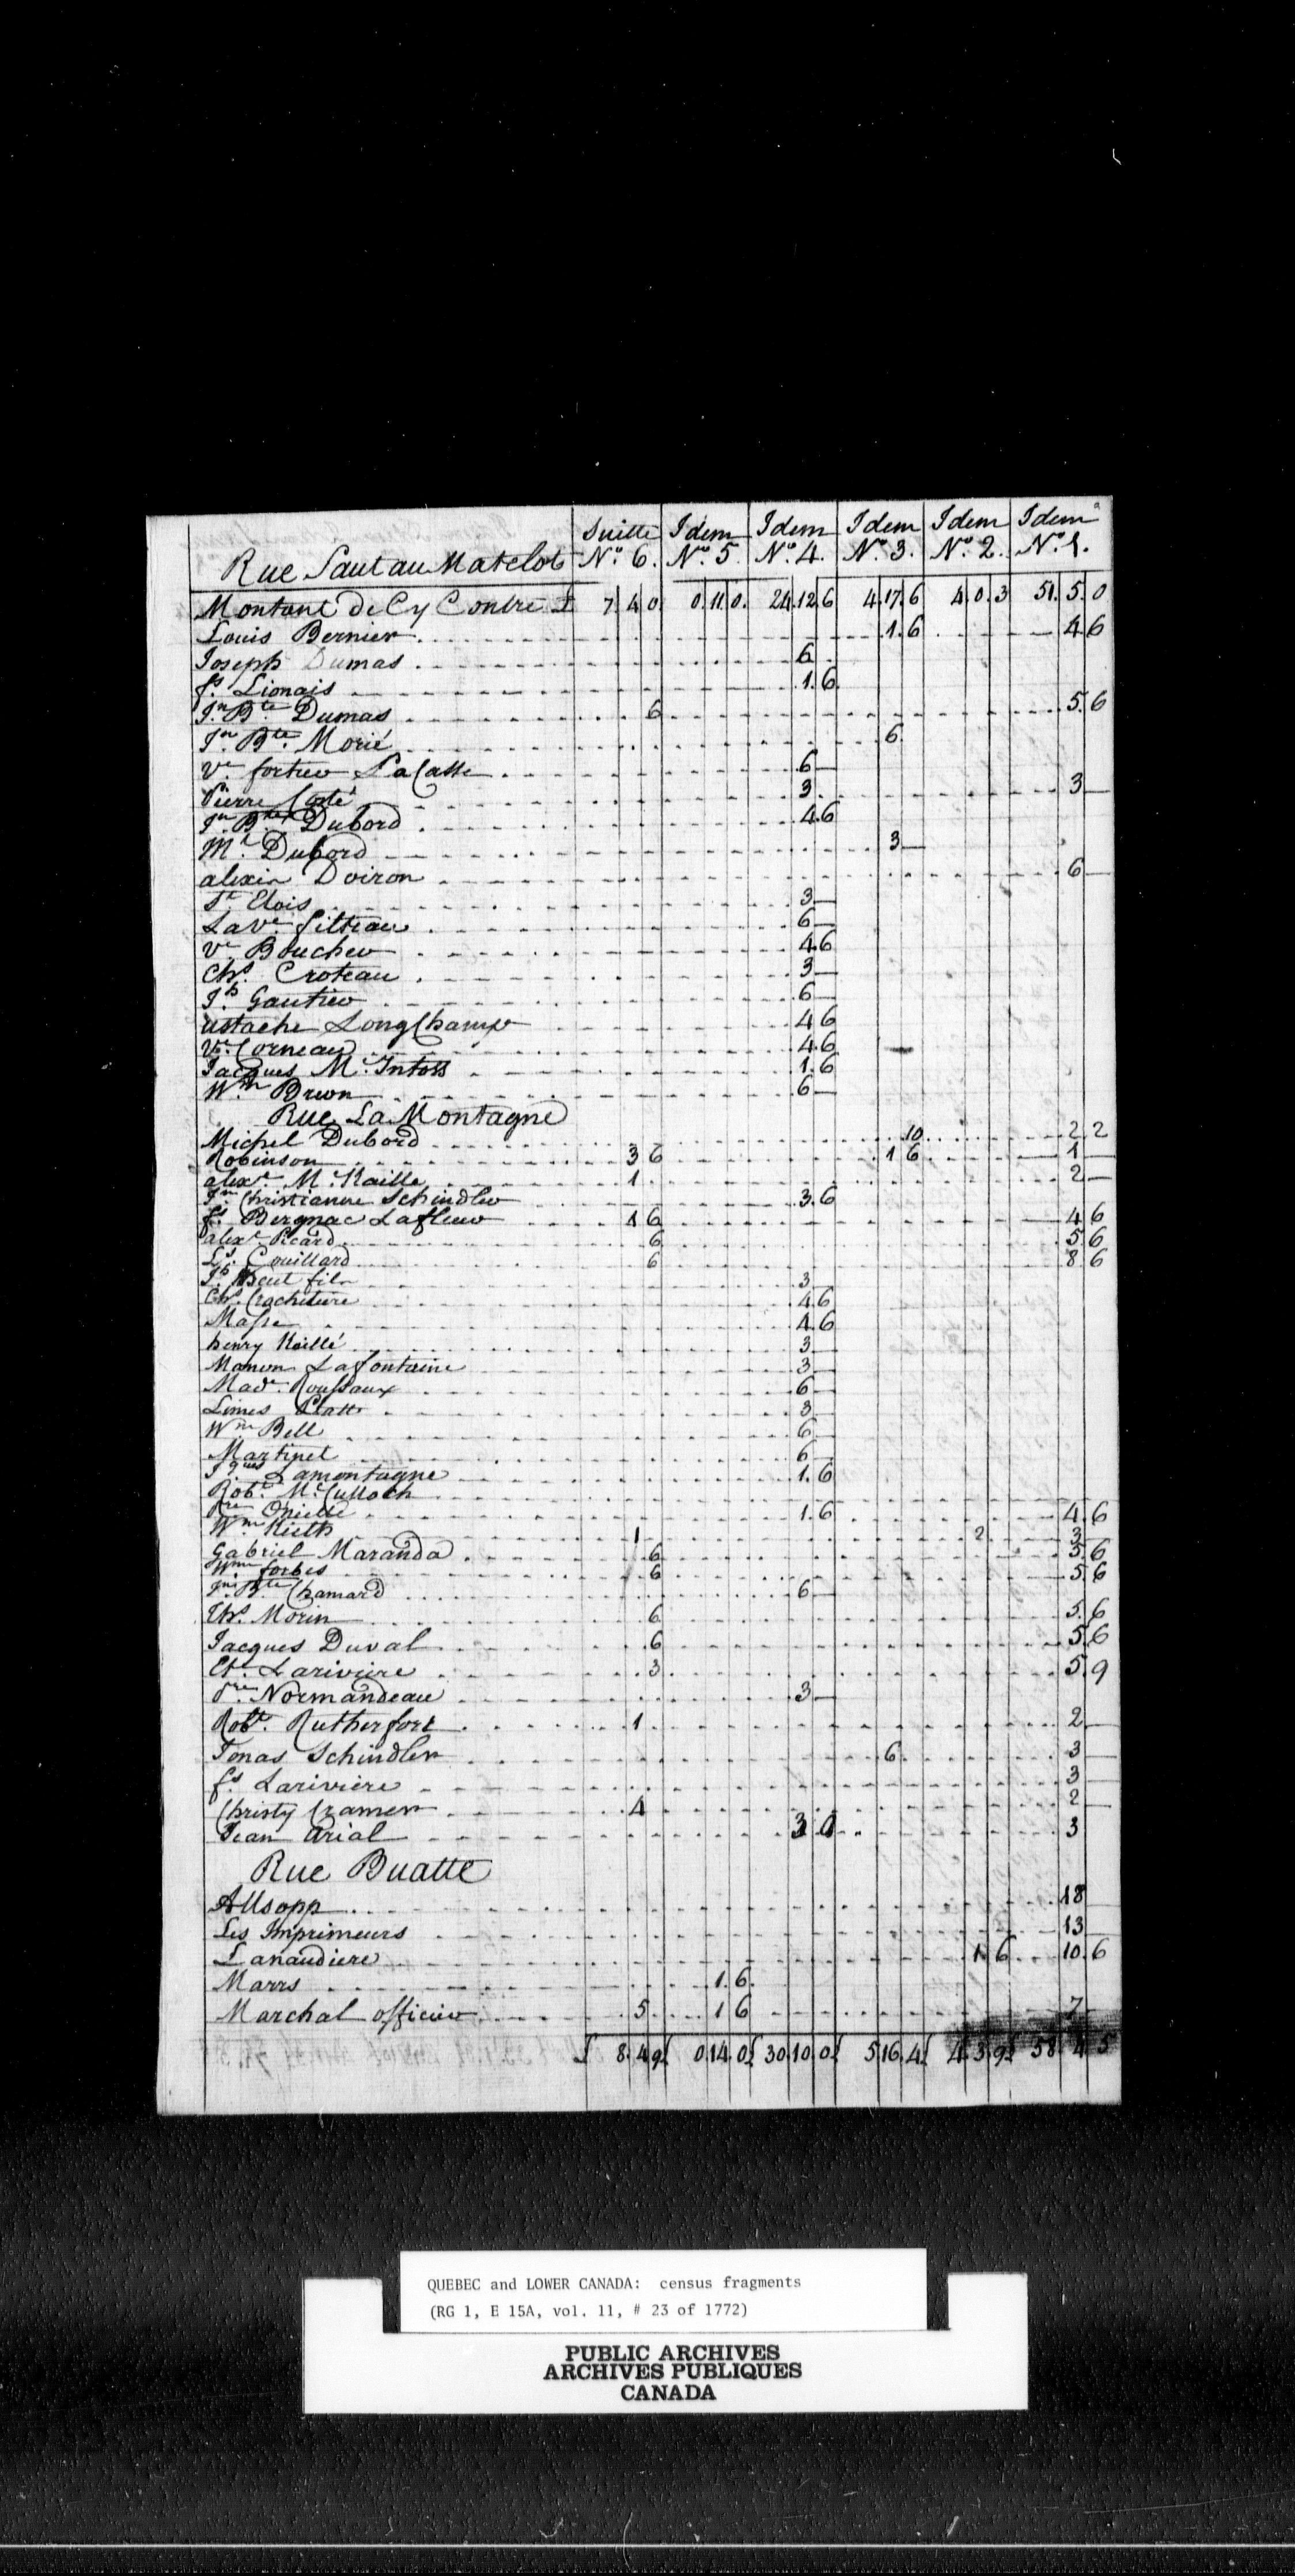 Suitte Idem Idem Idem Idem Idem
Rue Saut au Matelot No. 6. No. 5. No. 4. No. 3. No. 2. No. 1.
Montant De Cy Contre £ 7 4 0 0.11.0. 24.12.6 4.17.6 4.0.3 51.5.0
Louis Bernier 1.6 4 6
Joseph Dumas 6
fs. Lionais 1.6
Jn. Bte. Dumas 6 5.6
Jn. Bte. Morié 6
Ve. fortier LaCasse 6
Pierre Coté 3 3
Jn. Bte. Dubord 4.6
Mr. Dubord 3
alexin Doiron 6
St. Elois 3
La Ve. filteau 6
Ve. Boucher 4.6
Chs. Croteau 3
Jh. Gautier 6
ustache LongChamp 4 6
Ve. Corneau 4.6
Jacques Mc. Intoss 1.6
Wm. Brown 6
Rue La Montagne
Michel Dubord 10 2.2
Robinson 3 6 1 6 1
alexr. Mc. Kaille 1 2
Jn. Christianne Schindler 3.6
fs. Bergnac Lafleur 1 6 4 6
alexr. Picard 6 5 6
Ls. Couillard 6 8 6
Jh. fils 3
Chs. 4.6
Masse 4.6
henry Kaillé 3
Manon Lafontaine 3
Made. Roussaux 6
3
Wm. Bell 6
Martinet 6
Jques Lamontagne 1.6
Robt. Mc. Culloch
Pre. 1.6 4 6
Wm. Kieth 1 2 3
Gabriel Maranda 6 5 6
Wm. forbes 6 5 6
Jn. Bte. Chamard 6
Ths. Morin 6 5.6
Jacques Duval 6 5 6
Et. Larivière 3 5.9
Pre. Normandeau 3
Robt. Rutherfort 1 2
Jonas Schindler 6 3
fs. Larivière 3
Christy Cramer 4 2
Jean Arial 3 3
Rue Buatte
Allsopp 18
Les Imprimeurs 13
Lanaudiere 1 6 10.6
Marrs 1.6
Marchal officier 5 1 6 7
£ 8.4.9£ 0.14.0£ 30.10.0£ 5.16.4£ 4.3.9£ 58 4 5
QUEBEC and LOWER CANADA: census fragments
(RG 1, E 15A, vol. 11, # 23 of 1772)
PUBLIC ARCHIVES
ARCHIVES PUBLIQUES
CANADA